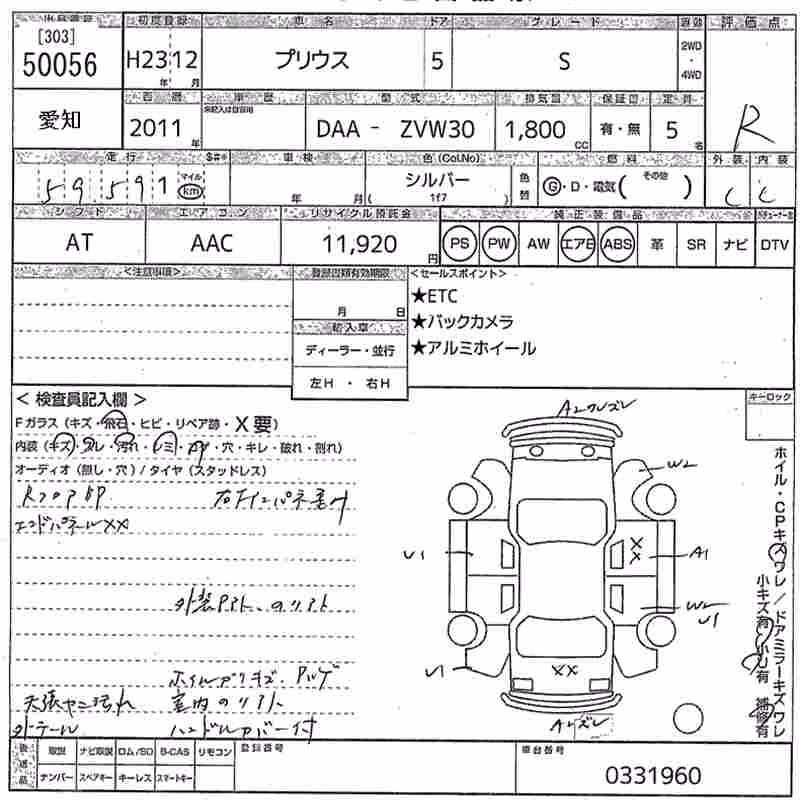 出品番号 初度登録 車名 ドア グレード 駆動 評価点
[303]
50056 H23 12 プリウス 5 S 2WD・4WD R
年 月
愛知 西暦 車歴 型式 排気量 保証書 定員
2011年 DAA - ZVW30 1,800 CC 有・無 5名
走行 車検 色(Col.No) 燃料 外装 内装
59591 マイル km 年 月 シルバー 色替 Ⓖ・D・電気( その他 ) C C
( 1f7 )
シフト エアコン リサイクル預託金 純正装備品
AT AAC 11,920円 PS PW AW エアB ABS 革 SR ナビ DTV
<注意事項> 登録書類有効期限 <セールスポイント>
月 日 ★ETC
輸入車 ★バックカメラ
ディーラー・並行 ★アルミホイール
左H ・ 右H
< 検査員記入欄 > キーロック
Fガラス (キズ・飛石・ヒビ・リペア跡・X要)
内装 (キズ・スレ・汚れ・シミ・ ・穴・キレ・破れ・割れ)
オーディオ (無し・穴) / タイヤ (スタッドレス)
Rフロア
エンドパネルXX
外装
ホイルプリキズ・
天張ヤニ汚れ 室内
外テール ハンドルカバー付
W2
U1 XX A1
W2
U1
U1 XX
ホイル・CPキズワレ/ドアミラーキズワレ
小キズ有 小U有 補修有
後送品 取説 ナビ取説 ロム/SD B-CAS リモコン 登録番号 車台番号
ナンバー スペアキー キーレス スマートキー 0331960